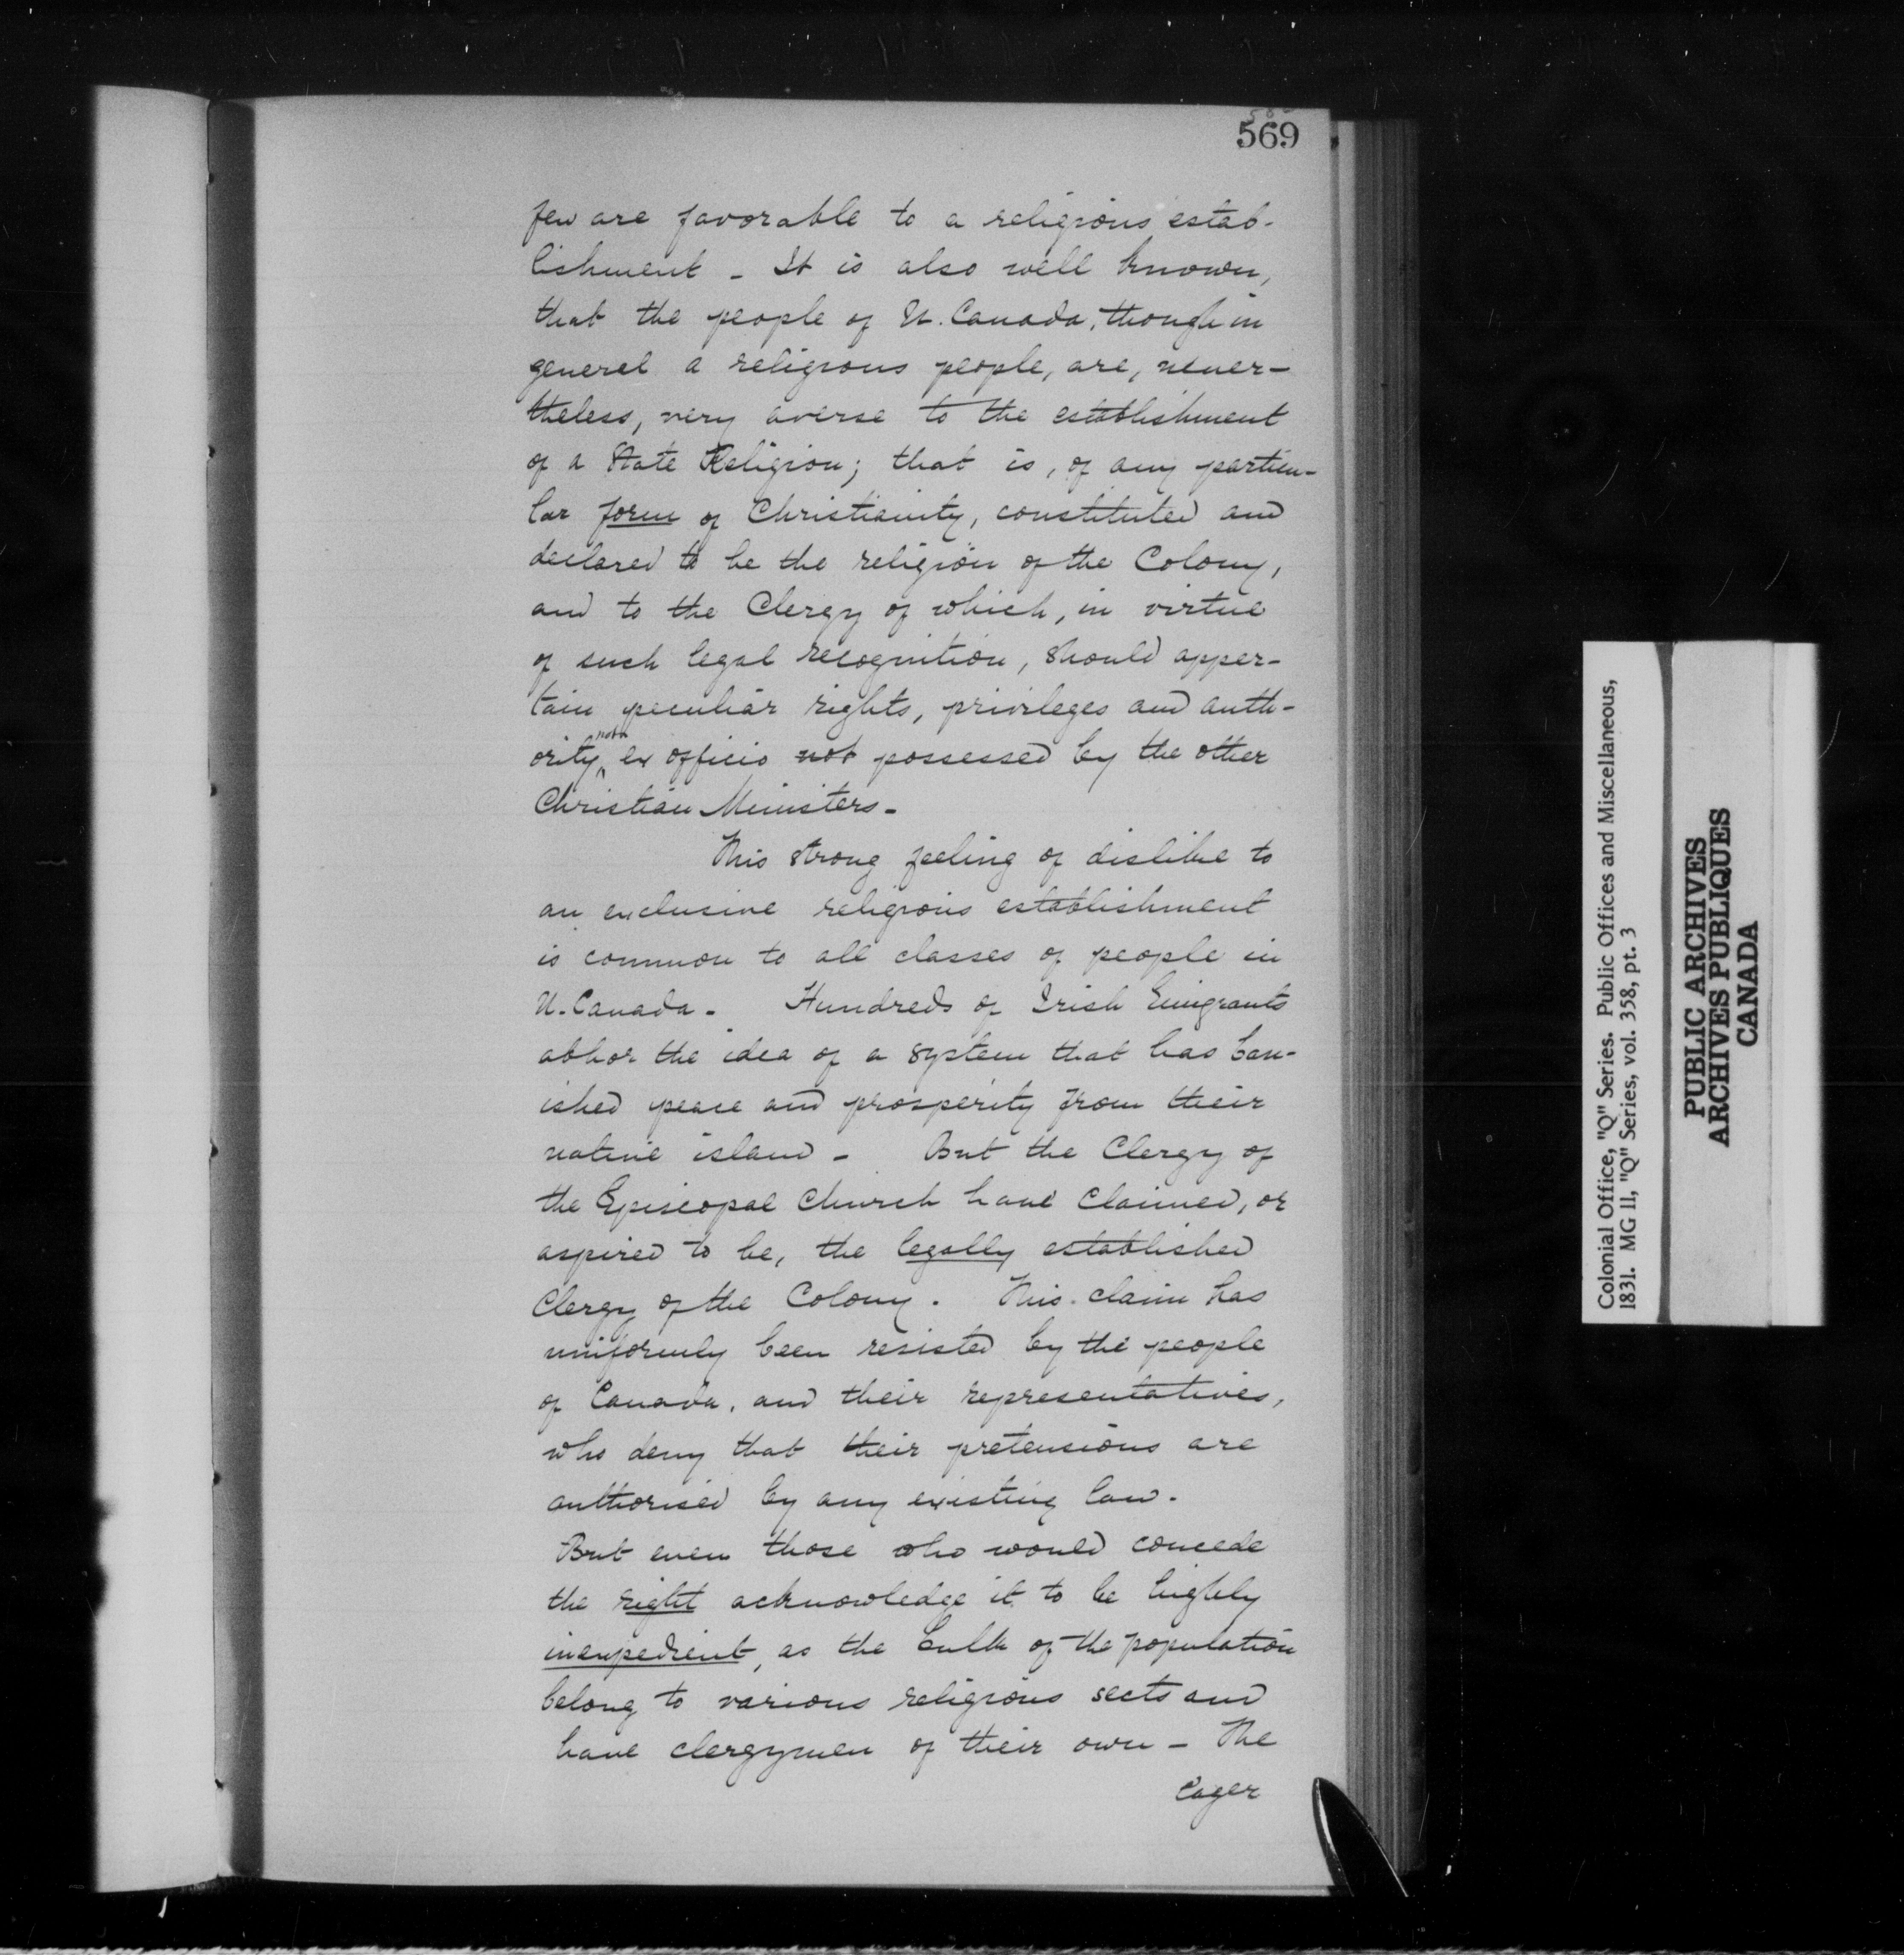 569
few are favorable to a religious estab-
lishment - It is also well known,
that the people of U. Canada, though in
general a religious people, are, never-
theless, very averse to the establishment
of a State Religion; that is, of any particu-
lar form of Christianity, constituted and
declared to be the religion of the Colony,
and to the Clergy of which, in virtue
of such legal recognition, should apper-
tain peculiar rights, privileges and auth-
ority, not ex officio not possessed by the other
Christian Ministers -
This strong feeling of dislike to
an exclusive religious establishment
is common to all classes of people in
U. Canada - Hundreds of Irish Emigrants
abhor the idea of a system that has ban-
ished peace and prosperity from their
native island - But the Clergy of
the Episcopal Church have claimed, or
aspired to be, the legally established
Clergy of the Colony. This claim has
uniformly been resisted by the people
of Canada, and their representatives,
who deny that their pretensions are
authorised by any existing law.
But even those who would concede
the right acknowledge it to be highly
inexpedient, as the bulk of the population
belong to various religious sects and
have clergymen of their own - The
Eager
Colonial Office, "Q" Series. Public Offices and Miscellaneous,
1831. MG 11, "Q" Series, vol. 358, pt. 3
PUBLIC ARCHIVES
ARCHIVES PUBLIQUES
CANADA